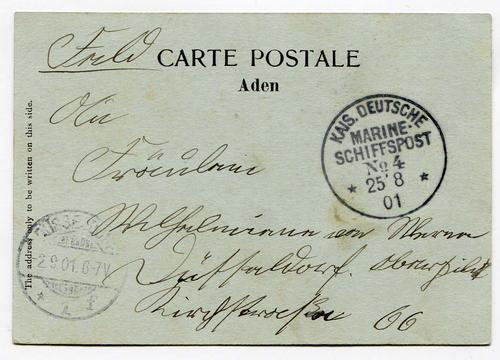 Feld
CARTE POSTALE
Aden
An
Fräulein
Wilhelmine von Werne
Düsseldorf.
66
The address only to be written on this side.
KAIS. DEUTSCHE
MARINE-
SCHIFFSPOST
No 4
* 25 8 *
01
2.9.01.6-7V